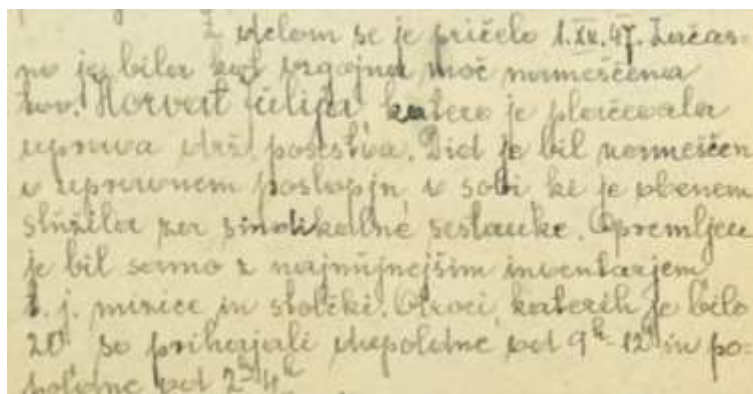 Z delom se je pričelo 1.IX.47. Začas-
no je bila kot vzgojna moč nameščena
tov. Horvat Julija, katero je plačevala
uprava drž. posestva. Did je bil nameščen
v upravnem poslopju v sobi, ki je obenem
služila za sindikalne sestanke. Opremljen
je bil samo z najnujnejšim inventarjem
t. j. mizice in stolčki. Otroci, katerih je bilo
20 so prihajali dopoldne od 9h-12h in po-
poldne od 2h